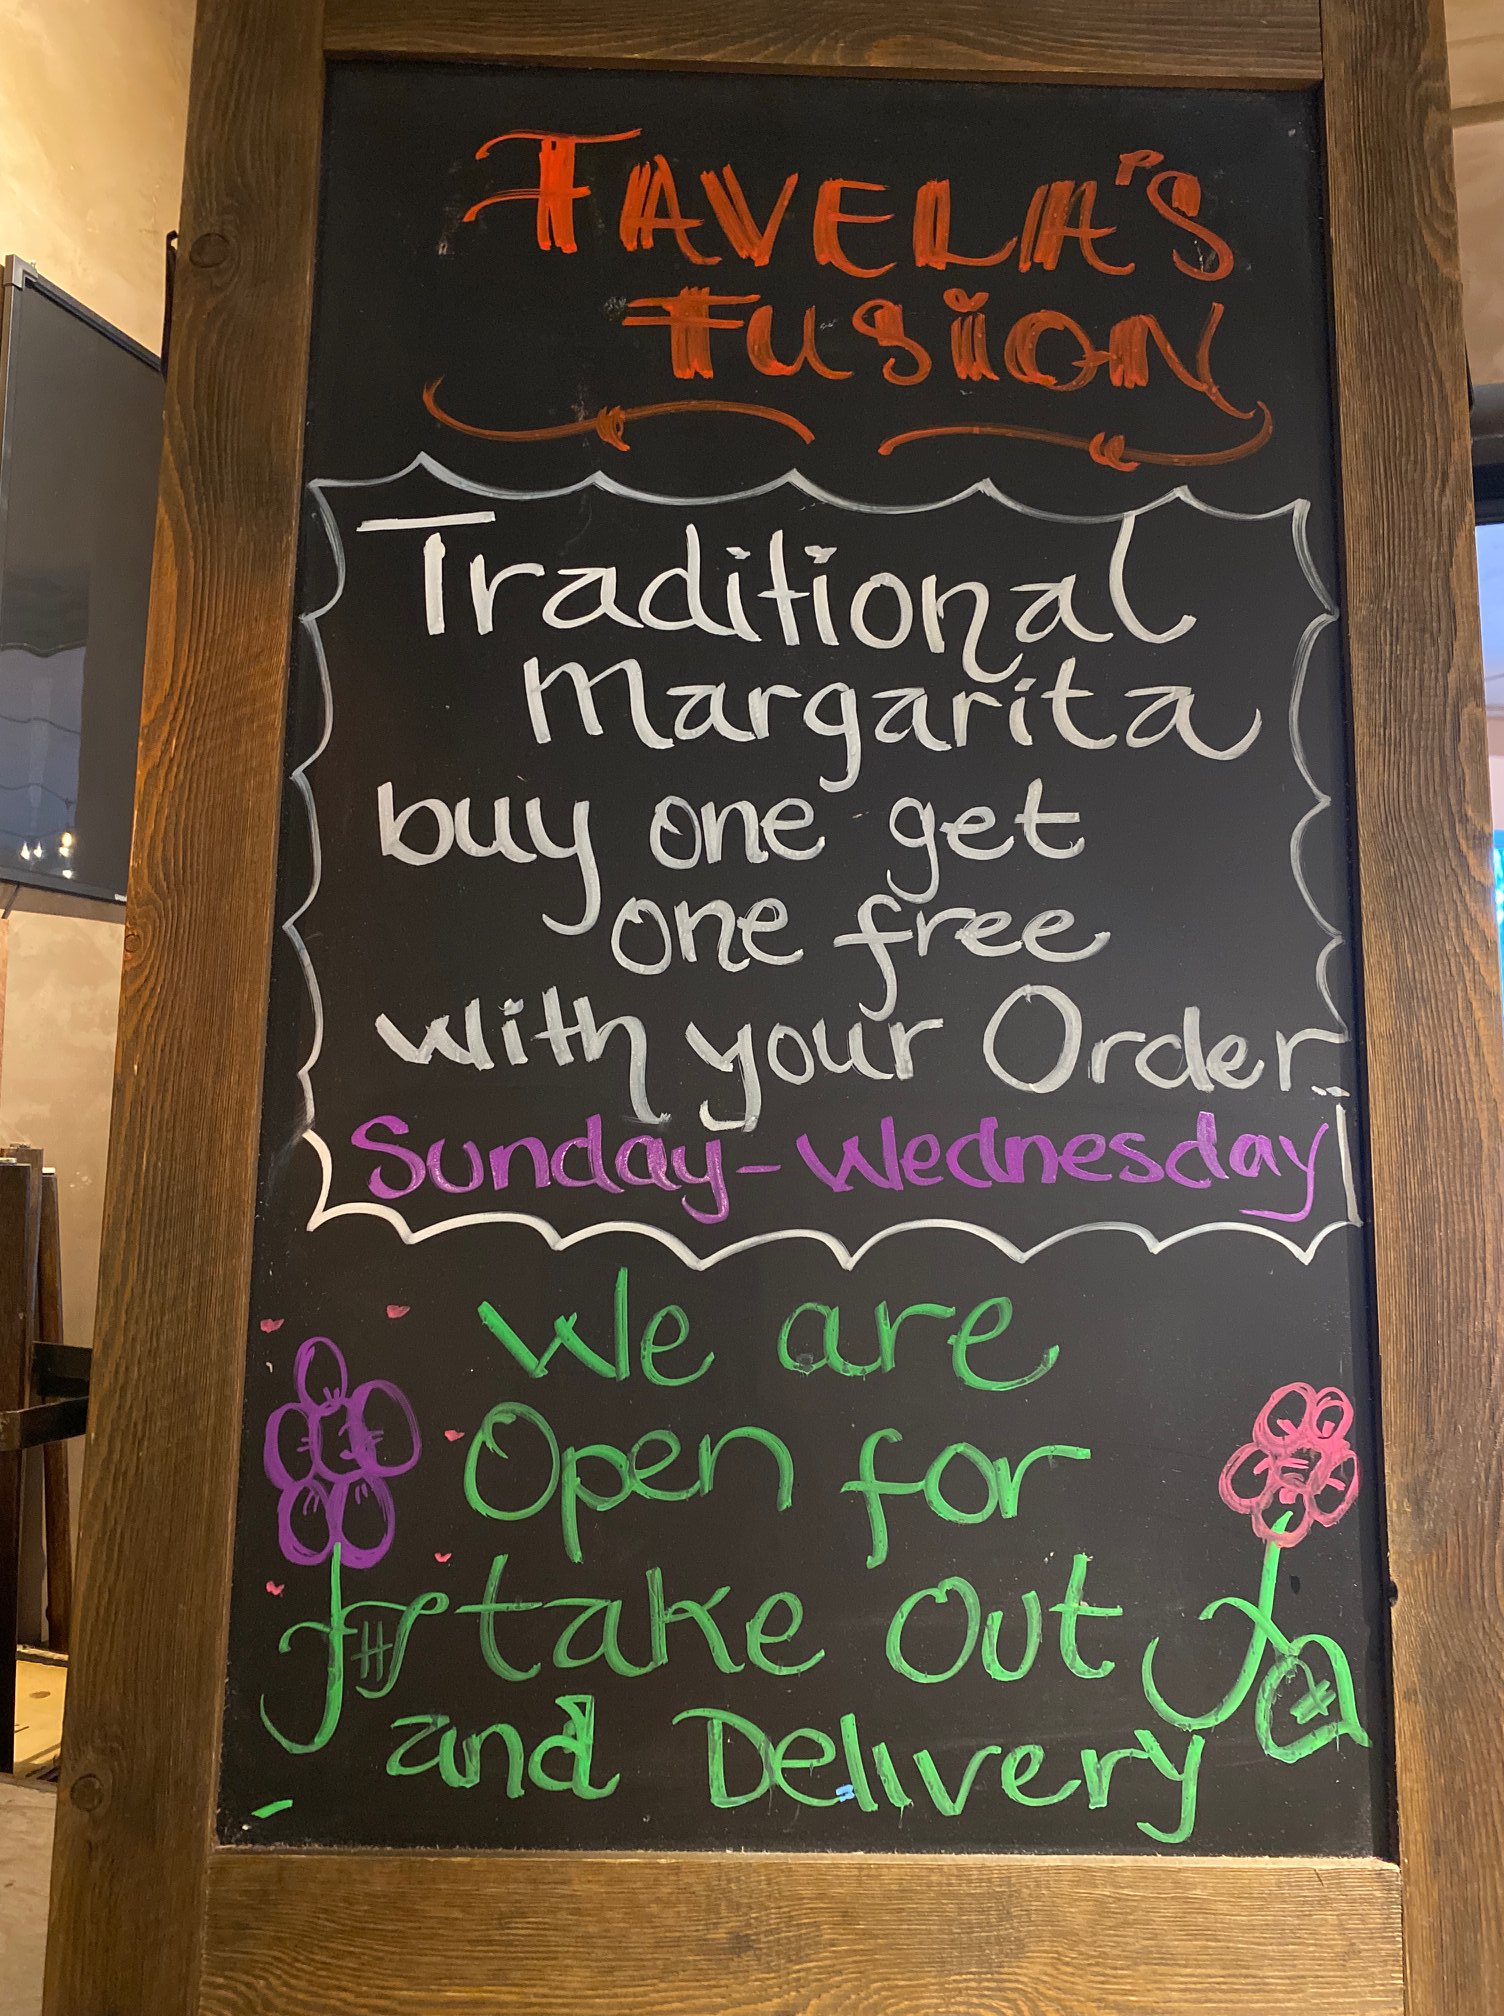 FAVELA'S
FUSION
Traditional
Margarita
buy one get
one free
with your Order.
Sunday-Wednesday
We are
Open for
take Out
and Delivery